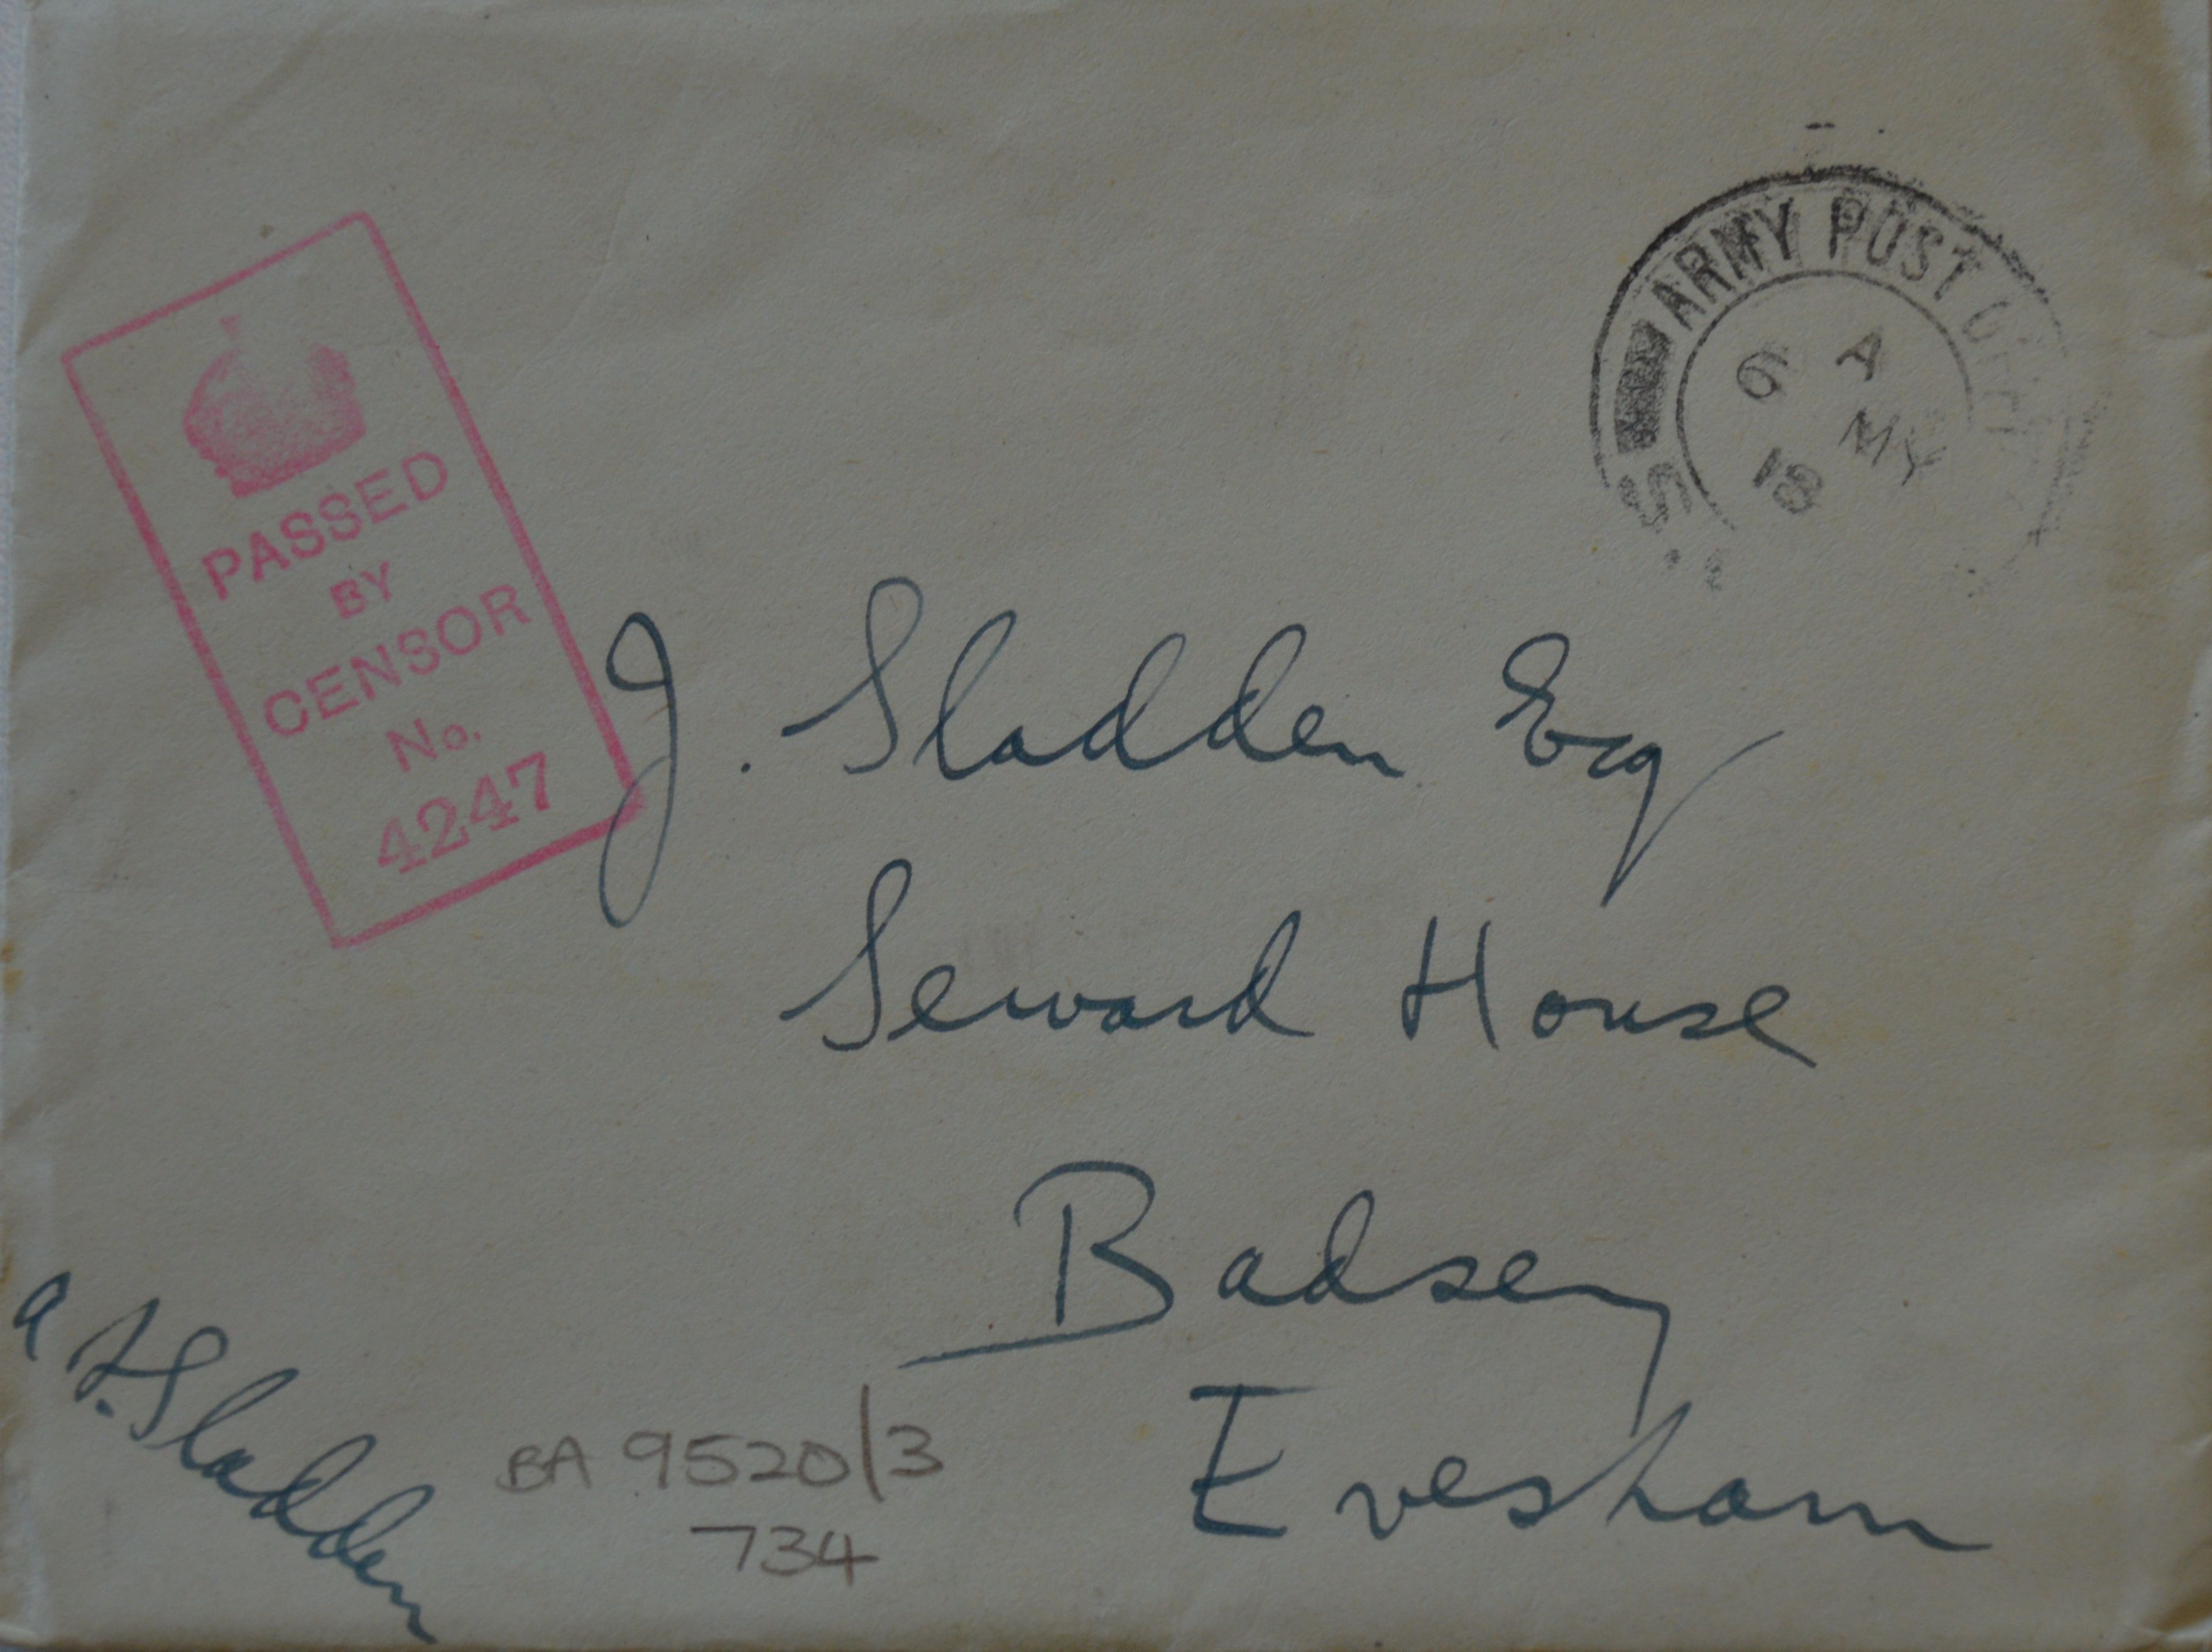 PASSED
BY
CENSOR
No.
4247
ARMY POST
A
6 MY
18
S.
J. Sladden Esq
Seward House
Badsey
Evesham
A F. Sladden
BA 9520/3
734